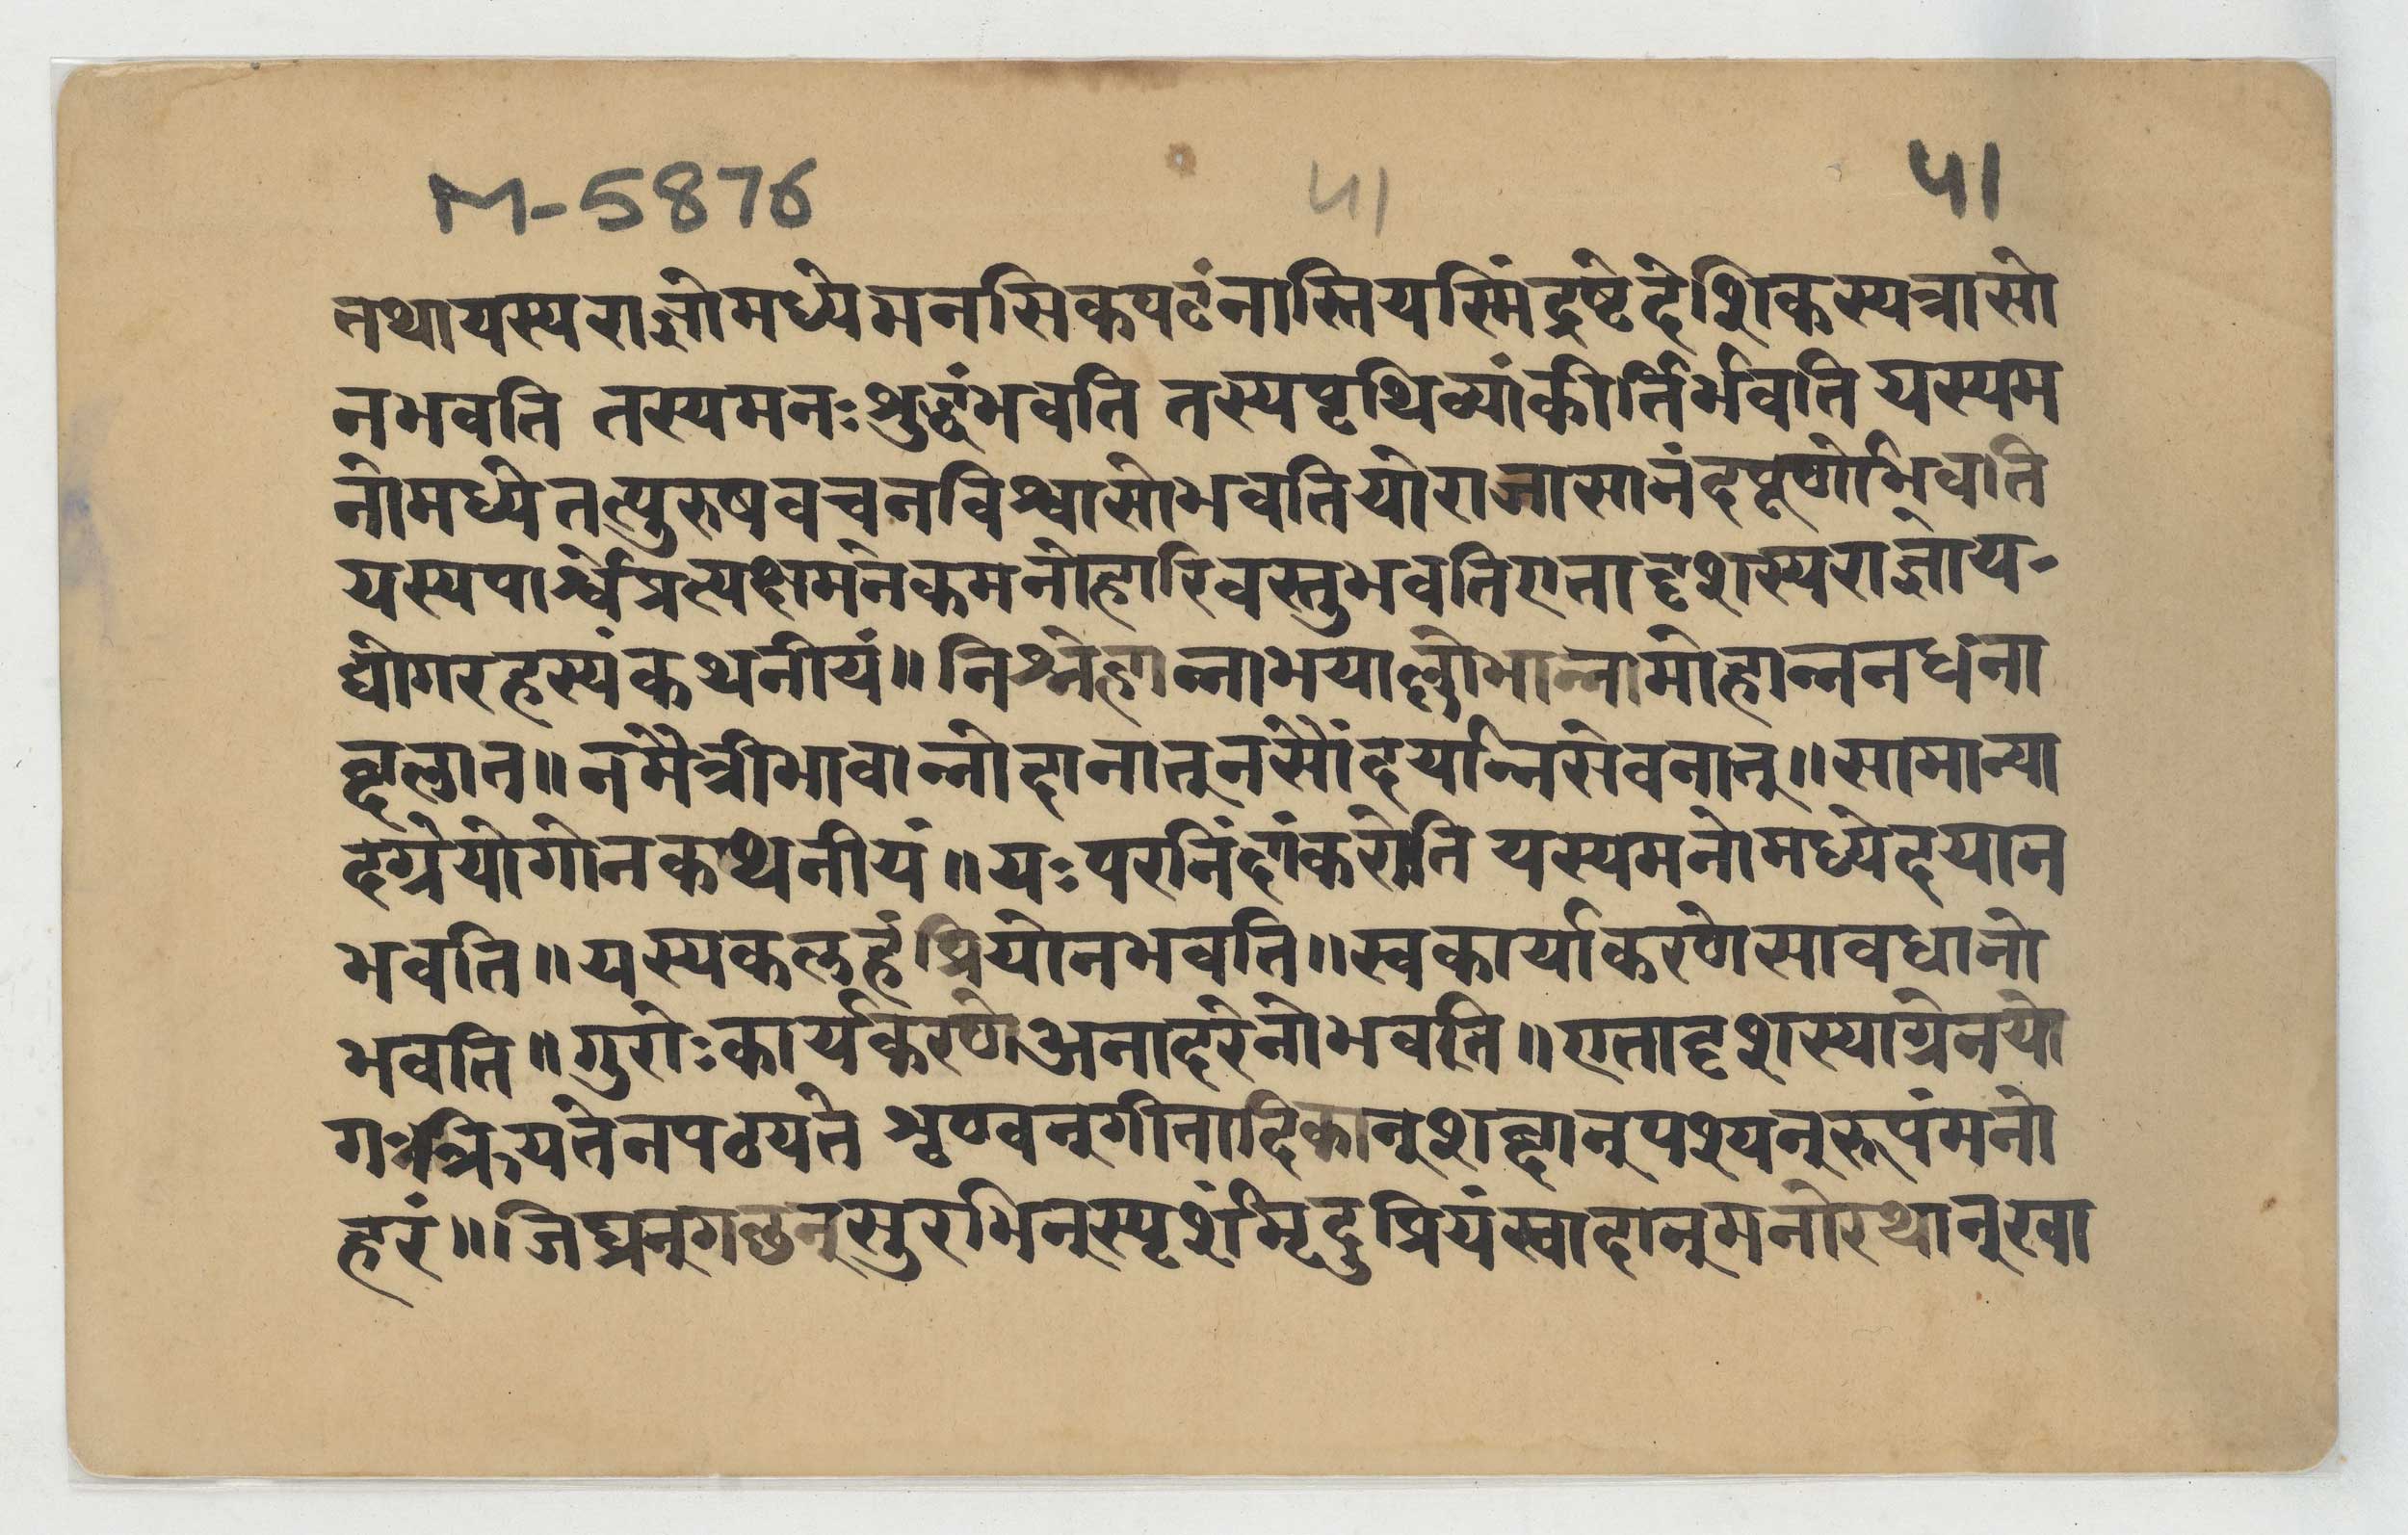 M-5876 ५१ ५१
तथायस्यराज्ञोमध्येमनसिकपटंनास्तियस्मिंदृष्टेदेशिकस्यत्रासो
नभवति तस्यमनःशुद्धंभवति तस्यपृथिव्यांकीर्तिर्भवति यस्यम
नोमध्येतत्पुरुषवचनविश्वासोभवतियोराजासानंदपूर्णोभवति
यस्यपार्श्वेप्रत्यक्षमनेकमनोहारिवस्तुभवतिएतादृशस्यराज्ञोय-
द्योगरहस्यंकथनीयं॥ निश्नेहान्नाभयाल्लोभान्नामोहान्ननधना
द्बलात॥ नमैत्रीभावान्नोदानात्नसौंदर्यान्नसेवनात्॥ सामान्या
दग्रेयोगोनकथनीयं॥ यःपरनिंदांकरोति यस्यमनोमध्येदयान
भवति॥ यस्यकलहंप्रियोनभवति॥ स्वकार्याकरणेसावधानो
भवति॥ गुरोःकार्यकरणेअनादरेनोभवति॥ एतादृशस्याग्रेनयो
गःक्रियतेनपठ्यते शृण्वन्गीतादिकान्शब्दान्पश्यन्रूपंमनो
हरं॥ जिघ्रन्गण्डन्सुरभिन्स्पृशंमृदुप्रियंस्वादान्मनोरथान्खा